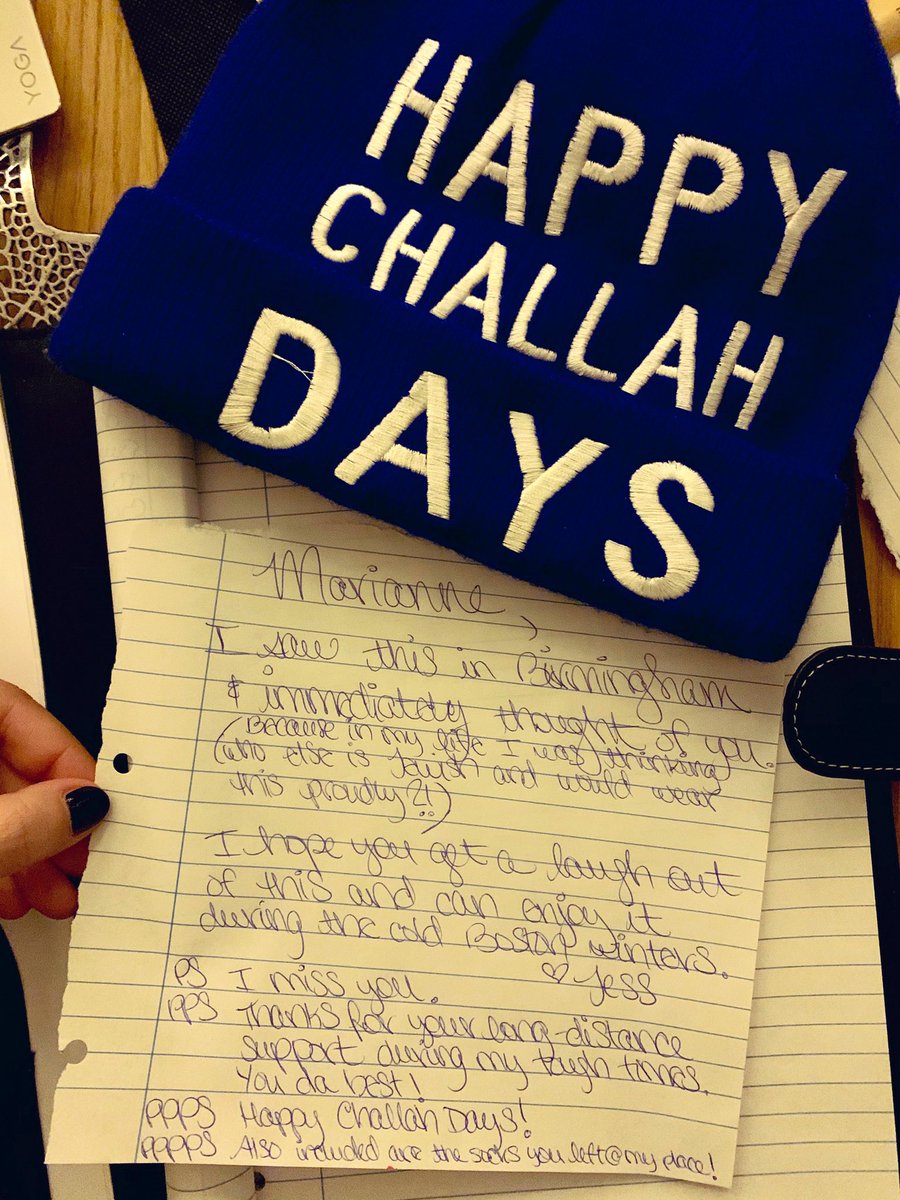 YOGA
HAPPY
CHALLAH
DAYS
Marianne,
I saw this in Birmingham
& immediately thought of you.
(Because in my life I was thinking
(who else is Jewish and would wear
this proudly?!)
I hope you get a laugh out
of this and can enjoy it
during the cold Boston winters.
♡ Jess
PS I miss you.
PPS Thanks for your long-distance
support during my tough times.
You da best!
PPPS Happy Challah Days!
PPPPS Also included are the socks you left @ my place!